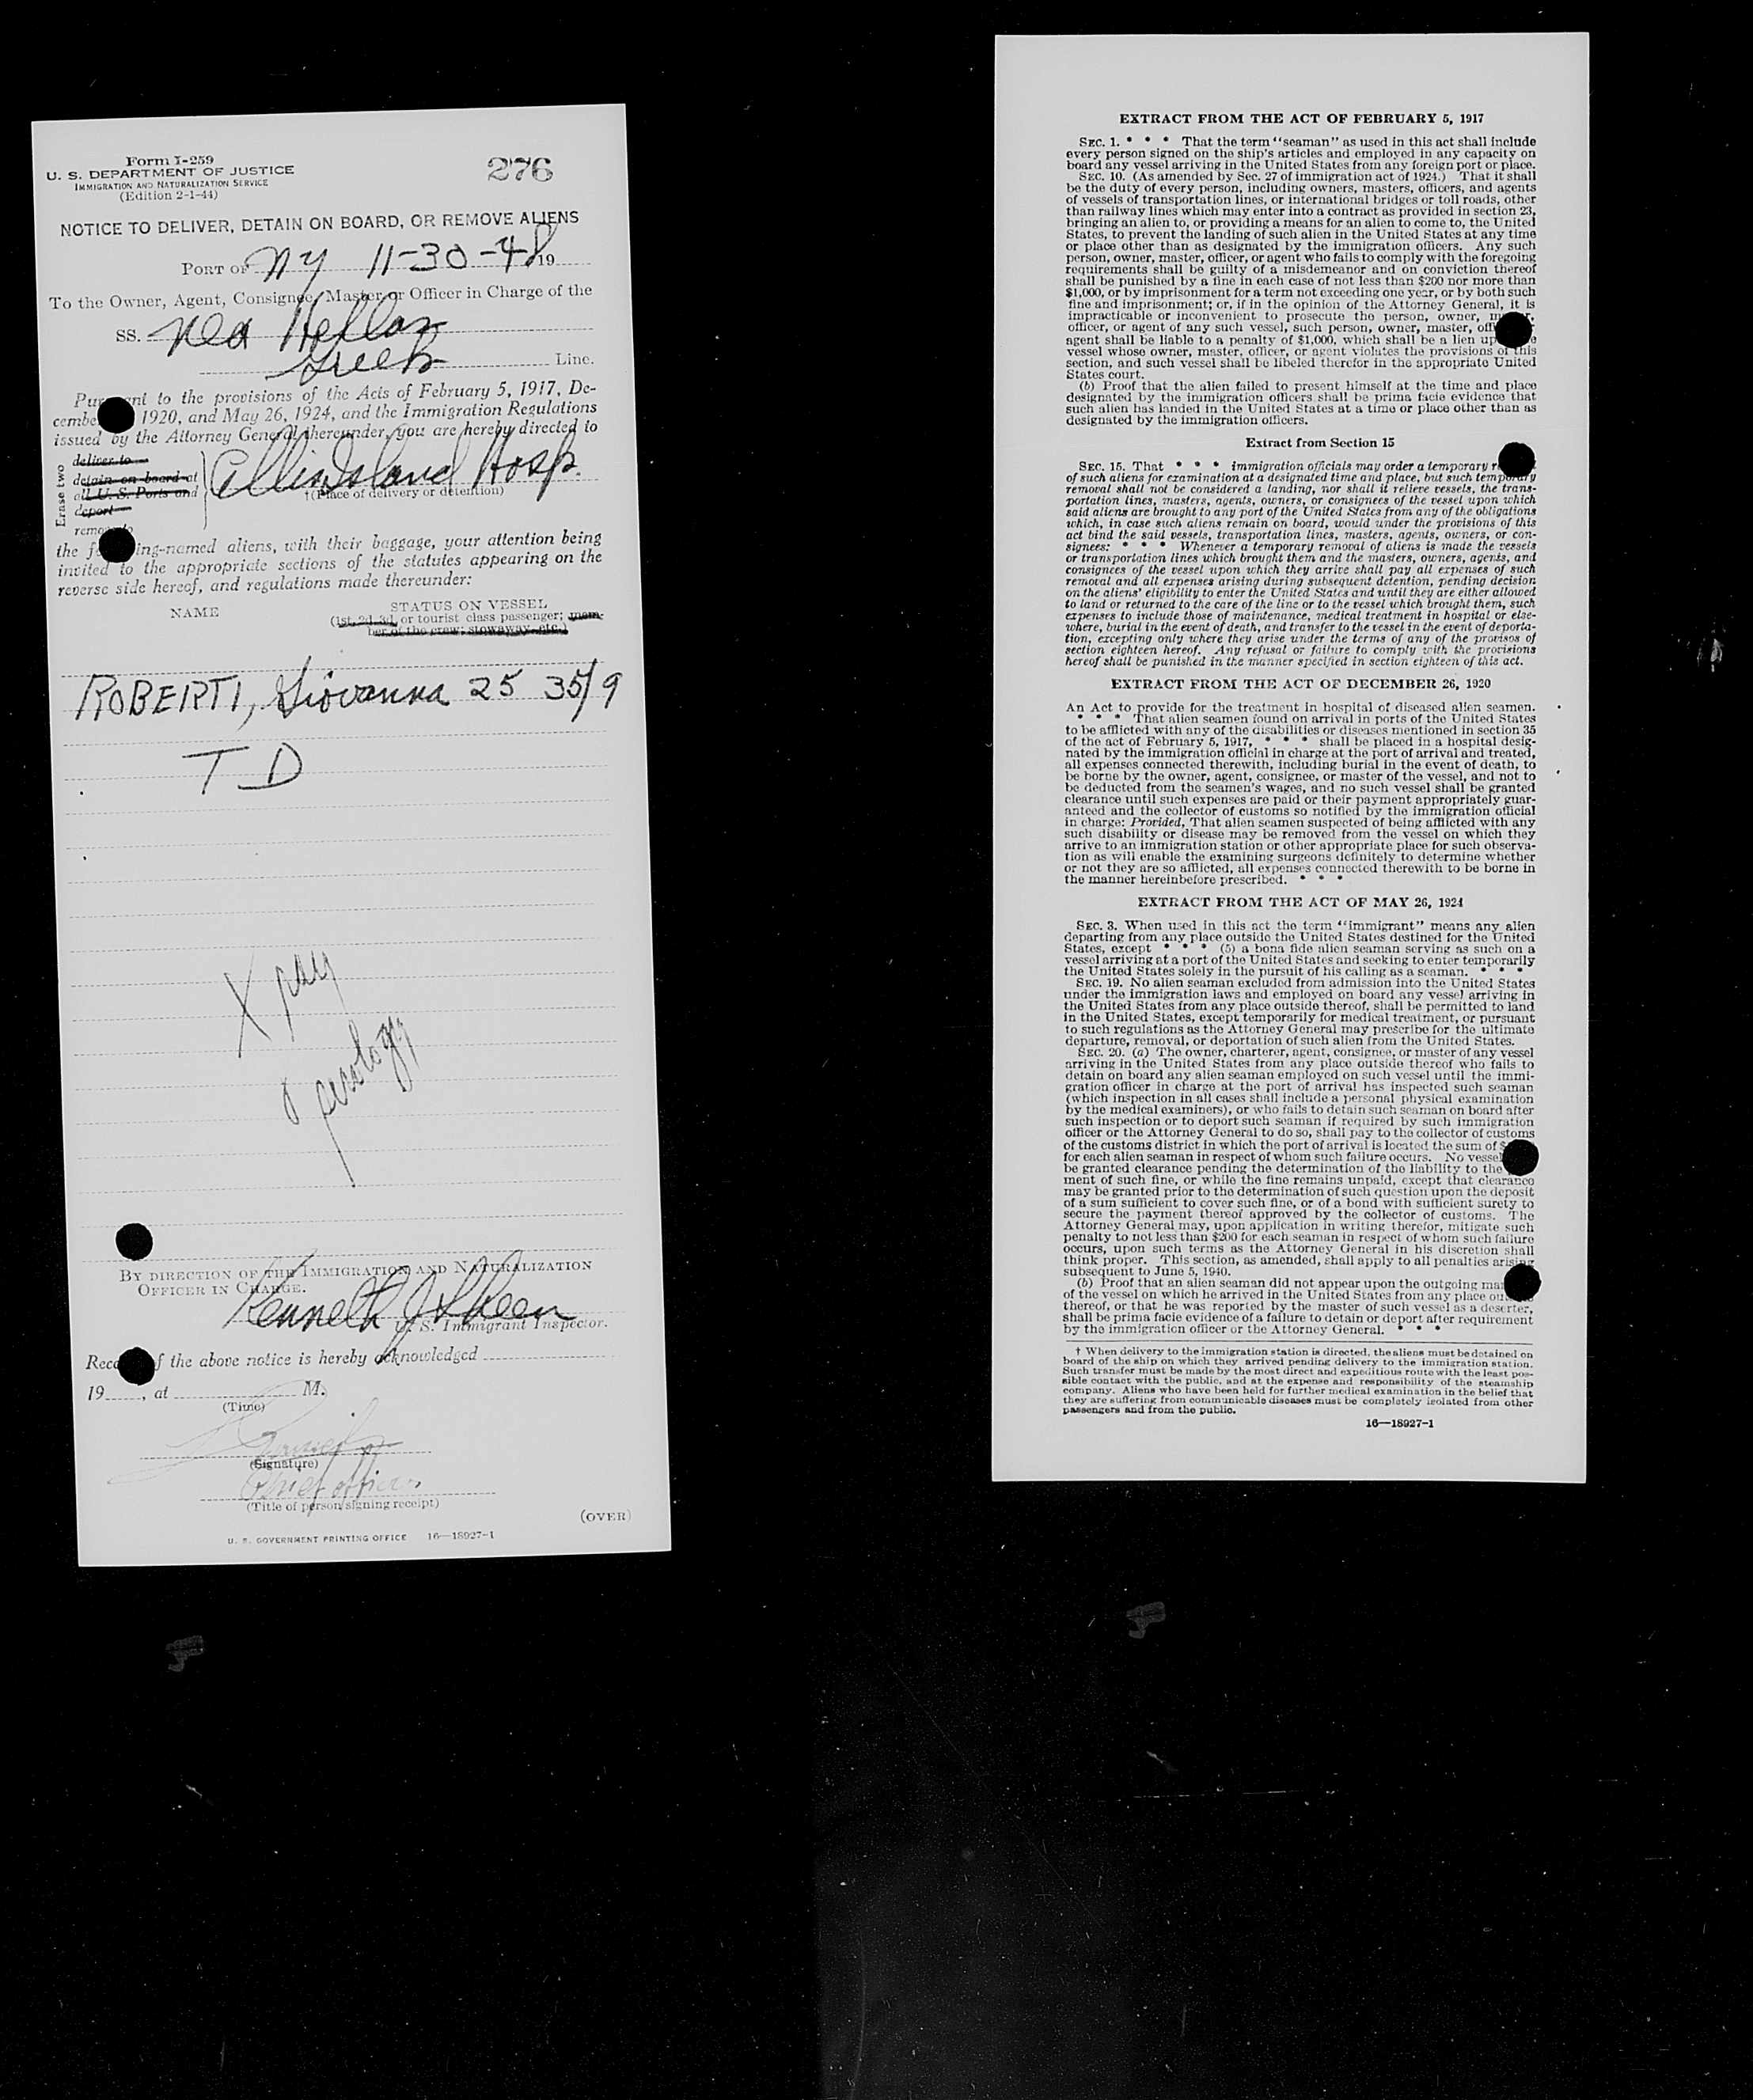 Form I-259
U. S. DEPARTMENT OF JUSTICE
IMMIGRATION AND NATURALIZATION SERVICE
(Edition 2-1-44)
276
NOTICE TO DELIVER, DETAIN ON BOARD, OR REMOVE ALIENS
PORT OF NY 11-30-48 19
To the Owner, Agent, Consignee, Master or Officer in Charge of the
SS. Nea Hellas
Greek Line.
to the provisions of the Acts of February 5, 1917, De-
1920, and May 26, 1924, and the Immigration Regulations
issued by the Attorney General thereunder, you are hereby directed to
Erase two
deliver to
detain on board at
all U. S. Ports and
deport
Ellis Island Hosp.
†(Place of delivery or detention)
the ing-named aliens, with their baggage, your attention being
invited to the appropriate sections of the statutes appearing on the
reverse side hereof, and regulations made thereunder:
NAME
STATUS ON VESSEL
(1st, 2d, 3d, or tourist class passenger; mem-
ber of the crew; stowaway, etc.)
ROBERTI, Giovanna 25 35/9
T D
X ray
& serology
BY DIRECTION OF THE IMMIGRATION AND NATURALIZATION
OFFICER IN CHARGE.
Kenneth
U. S. Immigrant Inspector.
f the above notice is hereby acknowledged
19 , at M.
(Time)
(Signature)
Chief officer
(Title of person signing receipt)
(OVER)
U. S. GOVERNMENT PRINTING OFFICE 16—18927-1
EXTRACT FROM THE ACT OF FEBRUARY 5, 1917
SEC. 1. * * * That the term "seaman" as used in this act shall include
every person signed on the ship's articles and employed in any capacity on
board any vessel arriving in the United States from any foreign port or place.
SEC. 10. (As amended by Sec. 27 of immigration act of 1924.) That it shall
be the duty of every person, including owners, masters, officers, and agents
of vessels of transportation lines, or international bridges or toll roads, other
than railway lines which may enter into a contract as provided in section 23,
bringing an alien to, or providing a means for an alien to come to, the United
States, to prevent the landing of such alien in the United States at any time
or place other than as designated by the immigration officers. Any such
person, owner, master, officer, or agent who fails to comply with the foregoing
requirements shall be guilty of a misdemeanor and on conviction thereof
shall be punished by a fine in each case of not less than $200 nor more than
$1,000, or by imprisonment for a term not exceeding one year, or by both such
fine and imprisonment; or, if in the opinion of the Attorney General, it is
impracticable or inconvenient to prosecute the person, owner,
officer, or agent of any such vessel, such person, owner, master,
agent shall be liable to a penalty of $1,000, which shall be a lien
vessel whose owner, master, officer, or agent violates the provisions of this
section, and such vessel shall be libeled therefor in the appropriate United
States court.
(b) Proof that the alien failed to present himself at the time and place
designated by the immigration officers shall be prima facie evidence that
such alien has landed in the United States at a time or place other than as
designated by the immigration officers.
Extract from Section 15
SEC. 15. That * * * immigration officials may order a temporary
of such aliens for examination at a designated time and place, but such temporary
removal shall not be considered a landing, nor shall it relieve vessels, the trans-
portation lines, masters, agents, owners, or consignees of the vessel upon which
said aliens are brought to any port of the United States from any of the obligations
which, in case such aliens remain on board, would under the provisions of this
act bind the said vessels, transportation lines, masters, agents, owners, or con-
signees: * * * Whenever a temporary removal of aliens is made the vessels
or transportation lines which brought them and the masters, owners, agents, and
consignees of the vessel upon which they arrive shall pay all expenses of such
removal and all expenses arising during subsequent detention, pending decision
on the aliens' eligibility to enter the United States and until they are either allowed
to land or returned to the care of the line or to the vessel which brought them, such
expenses to include those of maintenance, medical treatment in hospital or else-
where, burial in the event of death, and transfer to the vessel in the event of deporta-
tion, excepting only where they arise under the terms of any of the provisos of
section eighteen hereof. Any refusal or failure to comply with the provisions
hereof shall be punished in the manner specified in section eighteen of this act.
EXTRACT FROM THE ACT OF DECEMBER 26, 1920
An Act to provide for the treatment in hospital of diseased alien seamen.
* * * That alien seamen found on arrival in ports of the United States
to be afflicted with any of the disabilities or diseases mentioned in section 35
of the act of February 5, 1917, * * * shall be placed in a hospital desig-
nated by the immigration official in charge at the port of arrival and treated,
all expenses connected therewith, including burial in the event of death, to
be borne by the owner, agent, consignee, or master of the vessel, and not to
be deducted from the seamen's wages, and no such vessel shall be granted
clearance until such expenses are paid or their payment appropriately guar-
anteed and the collector of customs so notified by the immigration official
in charge: Provided, That alien seamen suspected of being afflicted with any
such disability or disease may be removed from the vessel on which they
arrive to an immigration station or other appropriate place for such observa-
tion as will enable the examining surgeons definitely to determine whether
or not they are so afflicted, all expenses connected therewith to be borne in
the manner hereinbefore prescribed. * * *
EXTRACT FROM THE ACT OF MAY 26, 1924
SEC. 3. When used in this act the term "immigrant" means any alien
departing from any place outside the United States destined for the United
States, except * * * (5) a bona fide alien seaman serving as such on a
vessel arriving at a port of the United States and seeking to enter temporarily
the United States solely in the pursuit of his calling as a seaman. * * *
SEC. 19. No alien seaman excluded from admission into the United States
under the immigration laws and employed on board any vessel arriving in
the United States from any place outside thereof, shall be permitted to land
in the United States, except temporarily for medical treatment, or pursuant
to such regulations as the Attorney General may prescribe for the ultimate
departure, removal, or deportation of such alien from the United States.
SEC. 20. (a) The owner, charterer, agent, consignee, or master of any vessel
arriving in the United States from any place outside thereof who fails to
detain on board any alien seaman employed on such vessel until the immi-
gration officer in charge at the port of arrival has inspected such seaman
(which inspection in all cases shall include a personal physical examination
by the medical examiners), or who fails to detain such seaman on board after
such inspection or to deport such seaman if required by such immigration
officer or the Attorney General to do so, shall pay to the collector of customs
of the customs district in which the port of arrival is located the sum of
for each alien seaman in respect of whom such failure occurs. No vessel
be granted clearance pending the determination of the liability to the
ment of such fine, or while the fine remains unpaid, except that clearance
may be granted prior to the determination of such question upon the deposit
of a sum sufficient to cover such fine, or of a bond with sufficient surety to
secure the payment thereof approved by the collector of customs. The
Attorney General may, upon application in writing therefor, mitigate such
penalty to not less than $200 for each seaman in respect of whom such failure
occurs, upon such terms as the Attorney General in his discretion shall
think proper. This section, as amended, shall apply to all penalties arising
subsequent to June 5, 1940.
(b) Proof that an alien seaman did not appear upon the outgoing
of the vessel on which he arrived in the United States from any place
thereof, or that he was reported by the master of such vessel as a deserter,
shall be prima facie evidence of a failure to detain or deport after requirement
by the immigration officer or the Attorney General. * * *
† When delivery to the immigration station is directed, the aliens must be detained on
board of the ship on which they arrived pending delivery to the immigration station.
Such transfer must be made by the most direct and expeditious route with the least pos-
sible contact with the public, and at the expense and responsibility of the steamship
company. Aliens who have been held for further medical examination in the belief that
they are suffering from communicable diseases must be completely isolated from other
passengers and from the public.
16—18927-1